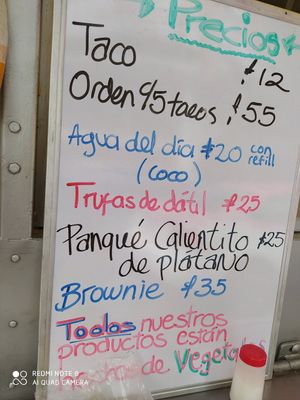 Precios
Taco $12
Orden 95 tacos $55
Agua del día $20 con refill
(coco)
Trufas de dátil $25
Panqué Calientito $25
de plátano
Brownie $35
Todos nuestros
productos están
hechos de Vegetales
REDMI NOTE 8
AI QUAD CAMERA